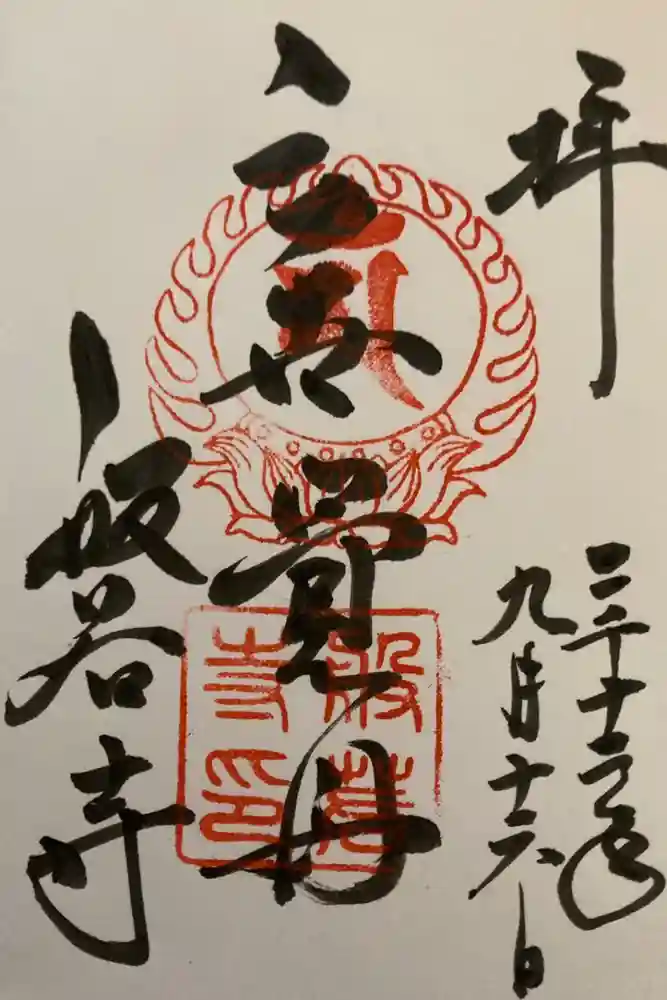 拝
二千十二年
九月十六日
三世覺母
般若寺
般若
寺印